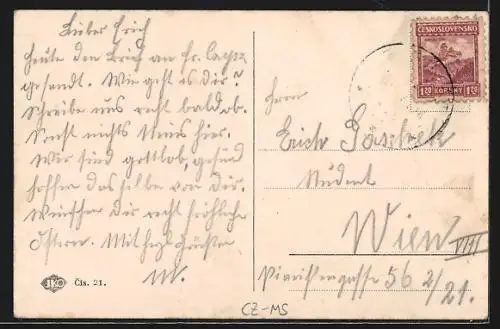 Lieber Erich
heute den Brief an Fr.
gesandt. Wie geht es dir?
Schreibe uns recht baldob.
Sonst nichts Neues hier.
Wir sind gottlob, gesund
hoffen dasselbe von dir.
Wünschen dir recht fröhliche
Ostern. Mit herzl. Grüssen
M.
Čís. 21.
ČESKOSLOVENSKO
1'20 KORUNY 1'20
Herrn
Erich
Student
Wien VIII
Piaristengasse 56 2/21.
CZ-MS